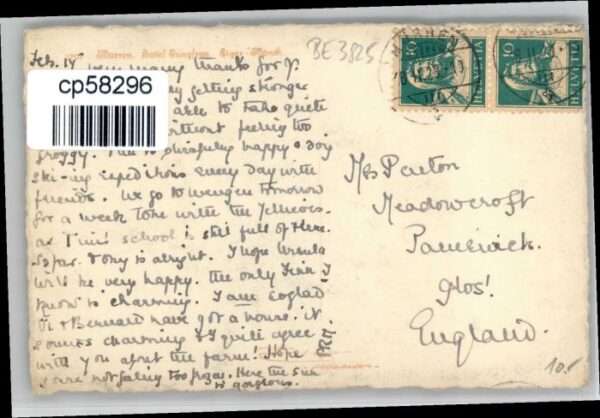 Feb. 14
very many thanks for y.
cp58296
getting stronger
able to take quite
without feeling too
groggy. I am so blissfully happy & doing
ski-ing expeditions every day with
friends. We go to Wengen tomorrow
for a week to be with the Jellicoes.
as Tim's school is still full of flue.
So far Tony is alright. I hope Ursula
will be very happy. The only Finn I
know is charming. I am so glad
Vi & Bernard have got a house. it
sounds charming & I quite agree
with you about the farm! Hope
y are not falling too. Here the sun
is gorgeous.
BE3825
10 HELVETIA
10 HELVETIA
Mrs Penton
Meadowcroft
Painswick.
Glos!
England.
10.-